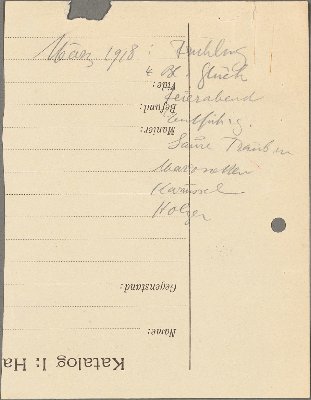 März 1918 : Frühling
4 Bl. : Glück
Feierabend
Entführg
Saure Trauben
Marionetten
Karussel
Holger
Vide:
Befund:
Manier:
Gegenstand:
Name:
Katalog I: Ha